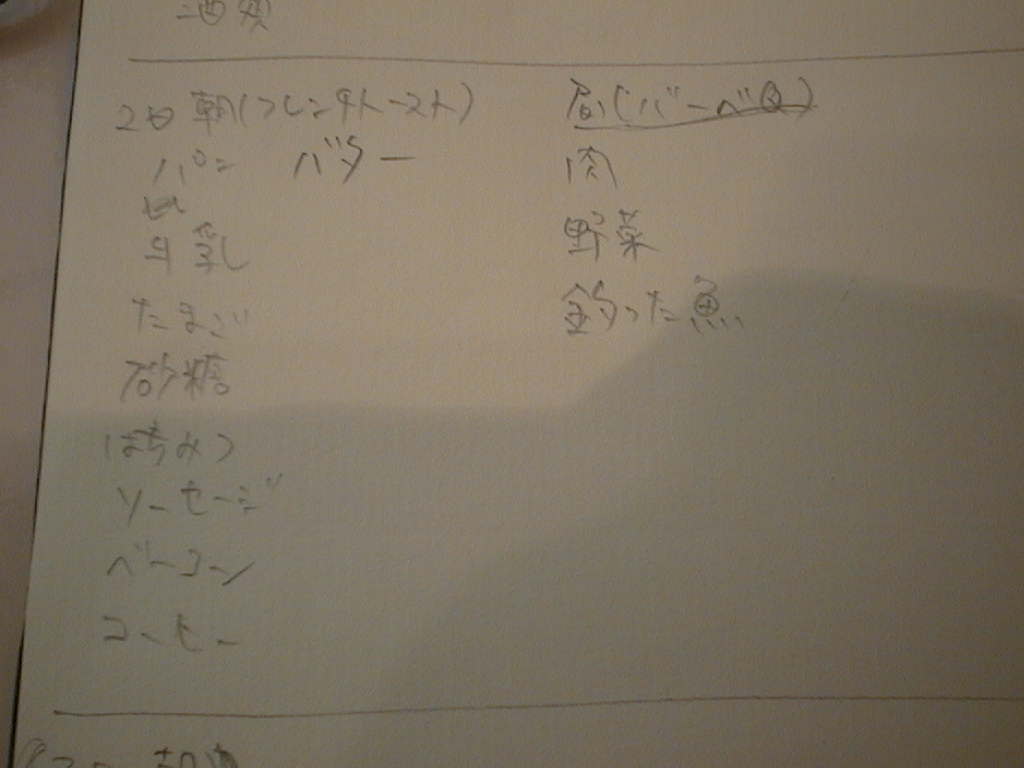 酒類
2日 朝(フレンチトースト)
パン バター
牛乳
たまご
砂糖
はちみつ
ソーセージ
ベーコン
コーヒー
昼(バーベQ)
肉
野菜
釣った魚